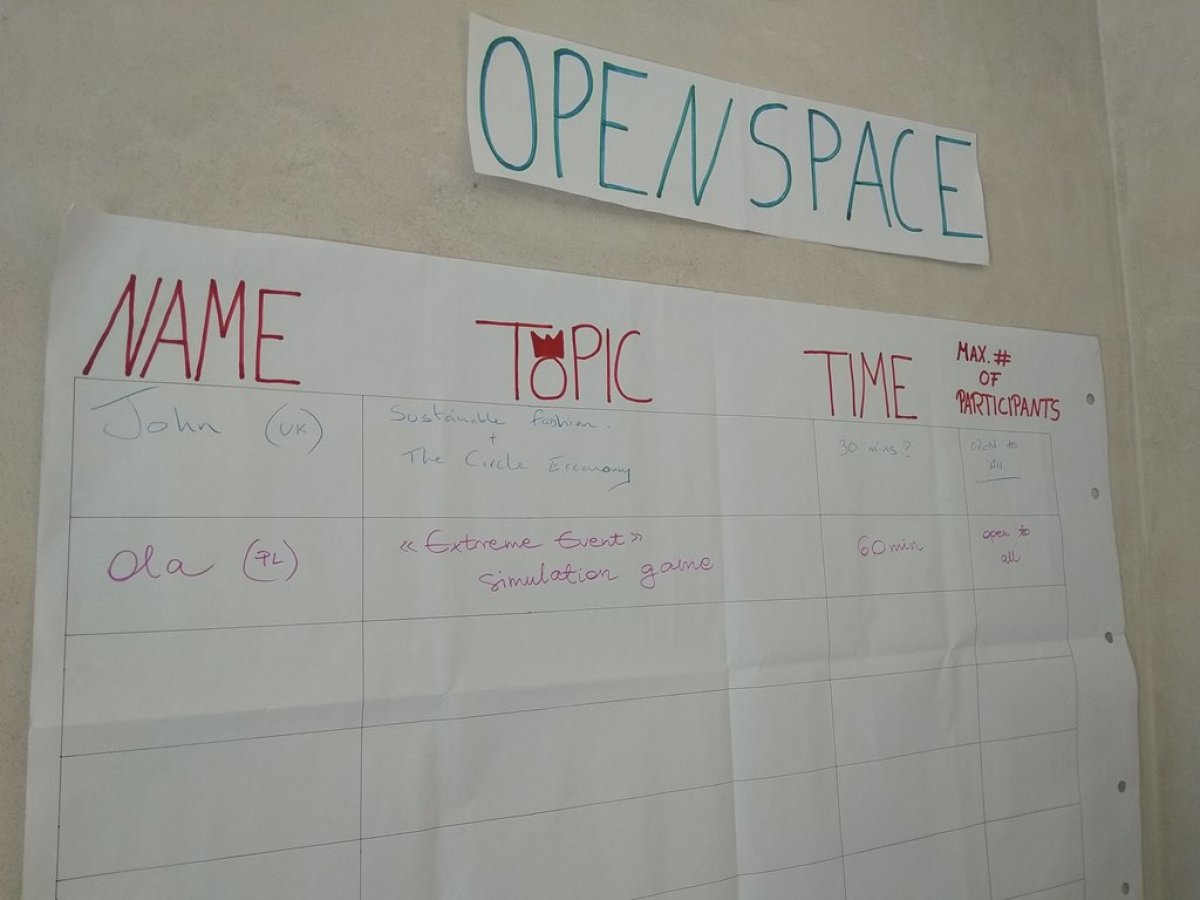 OPEN SPACE
NAME TOPIC TIME MAX. #
OF
PARTICIPANTS
John (UK) Sustainable Fashion. 30 mins? OPEN to
+
The Circle Economy All
Ola (PL) « Extreme Event » 60min open to
simulation game all